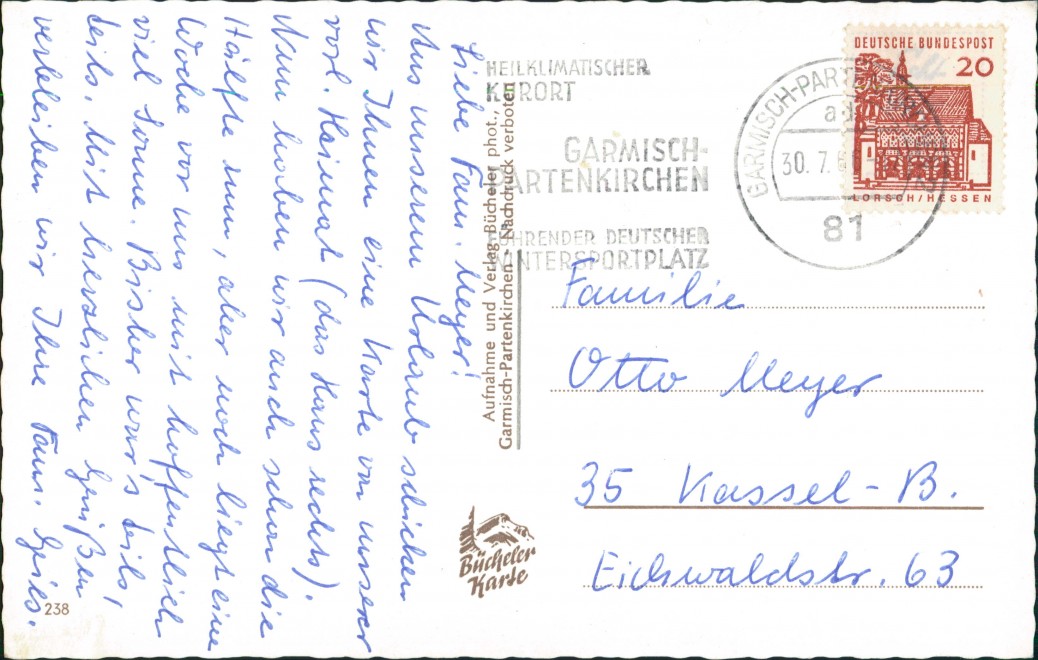 Liebe Fam. Meyer!
Aus unserem Urlaub schicken
wir Ihnen eine Karte von unserer
vorl. Heimat (das Haus rechts).
Nun haben wir auch schon die
Hälfte rum, aber noch liegt eine
Woche vor uns mit hoffentlich
viel Sonne. Bisher war's teils,
teils. Mit herzlichen Grüßen
verbleiben wir Ihre Fam. Gries.
238
HEILKLIMATISCHER
KURORT
GARMISCH-
PARTENKIRCHEN
FÜHRENDER DEUTSCHER
WINTERSPORTPLATZ
Aufnahme und Verlag Bücheler phot.,
Garmisch-Partenkirchen Nachdruck verboten
Bücheler
Karte
GARMISCH-PARTENK
30.7.6
81
DEUTSCHE BUNDESPOST
20
LORSCH/HESSEN
Familie
Otto Meyer
35 Kassel-B.
Eichwaldstr. 63